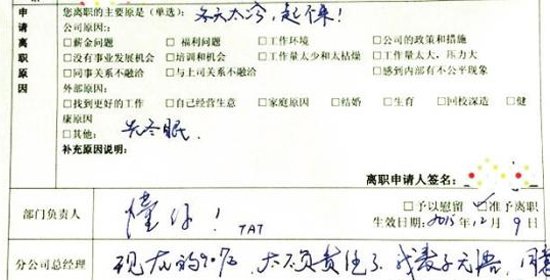 申请离职原因
您离职的主要原是(单选): 冬天太冷,起不来!
公司原因:
□薪金问题 □福利问题 □工作环境 □公司的政策和措施
□没有事业发展机会 □培训和机会 □工作量太少和太枯燥 □工作量太大,压力大
□同事关系不融洽 □与上司关系不融洽 □感到内部有不公平现象
外部原因:
□找到更好的工作 □自己经营生意 □家庭原因 □结婚 □生育 □回校深造 □健
康原因
□其他: 去冬眠.
补充原因说明:
离职申请人签名:
部门负责人 懂你! TAT
□予以慰留 准予离职
生效日期: 2015.12月9日
分公司总经理 现在的90后, 太不负责任了, 我表示无语.